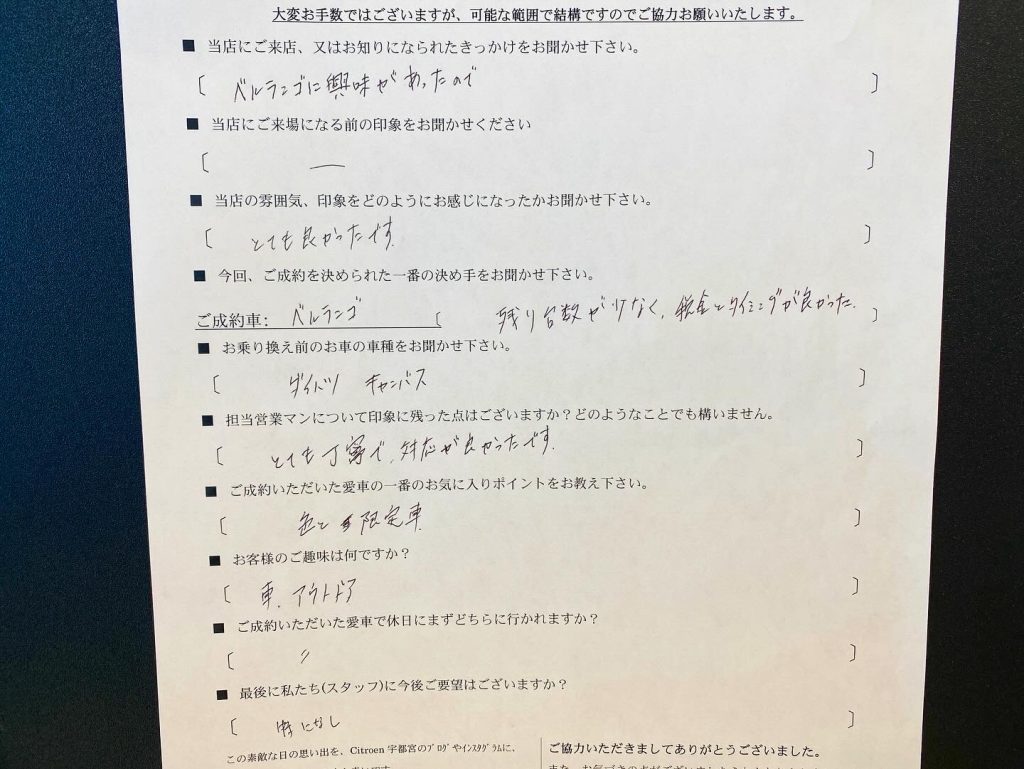 大変お手数ではございますが、可能な範囲で結構ですのでご協力お願いいたします。
■ 当店にご来店、又はお知りになられたきっかけをお聞かせ下さい。
〔 ベルランゴに興味があったので 〕
■ 当店にご来場になる前の印象をお聞かせください
〔 — 〕
■ 当店の雰囲気、印象をどのようにお感じになったかお聞かせ下さい。
〔 とても良かったです。 〕
■ 今回、ご成約を決められた一番の決め手をお聞かせ下さい。
ご成約車: ベルランゴ 〔 残り台数が少なく、税金とタイミングが良かった。 〕
■ お乗り換え前のお車の車種をお聞かせ下さい。
〔 ダイハツ キャンバス 〕
■ 担当営業マンについて印象に残った点はございますか?どのようなことでも構いません。
〔 とても丁寧で、対応が良かったです。 〕
■ ご成約いただいた愛車の一番のお気に入りポイントをお教え下さい。
〔 色と限定車 〕
■ お客様のご趣味は何ですか?
〔 車、アウトドア 〕
■ ご成約いただいた愛車で休日にまずどちらに行かれますか?
〔 〃 〕
■ 最後に私たち(スタッフ)に今後ご要望はございますか?
〔 特になし 〕
この素敵な日の思い出を、Citroen 宇都宮のブログやインスタグラムに、
ご協力いただきましてありがとうございました。